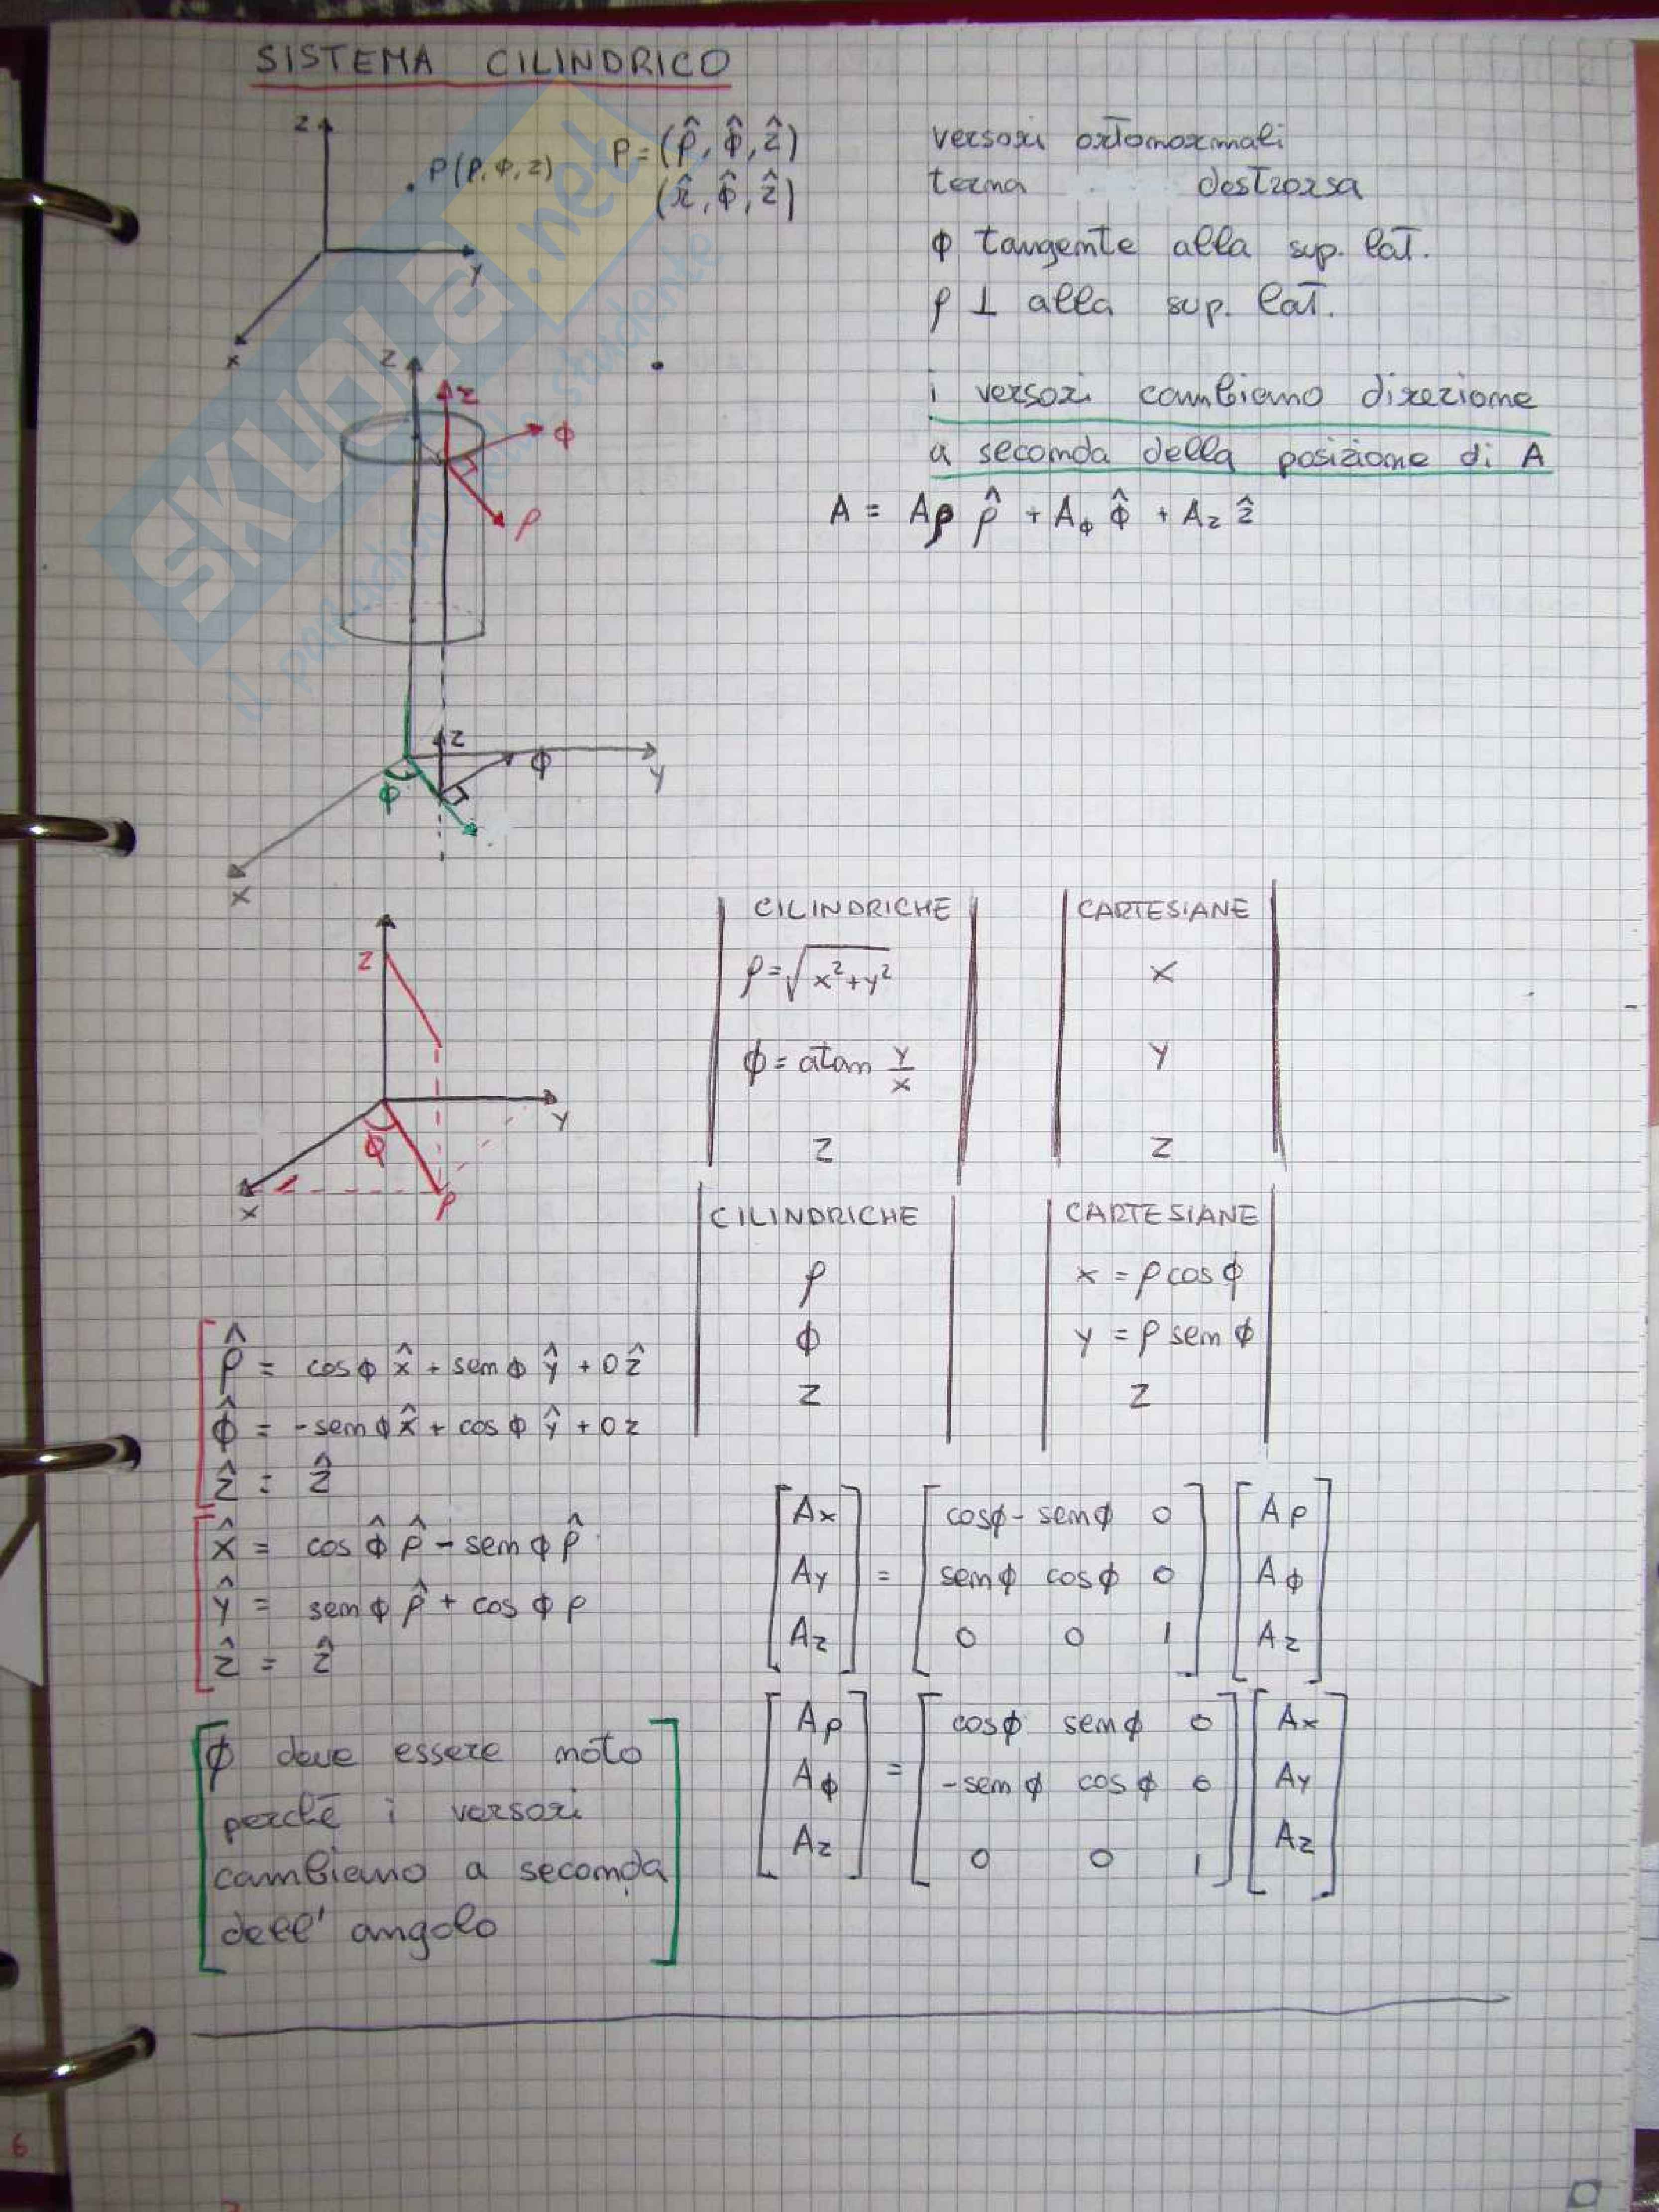 SISTEMA CILINDRICO
z
P(ρ, φ, z)
y
x
P = (ρ̂, φ̂, ẑ)
(r̂, φ̂, ẑ)
versori ortonormali
terna destrorsa
φ tangente alla sup. lat.
ρ ⊥ alla sup. lat.
i versori cambiano direzione
a seconda della posizione di A
A = Aρ ρ̂ + Aφ φ̂ + Az ẑ
SKUOLA.net
il paradiso dello studente
z
z
φ
ρ
z
φ
y
φ
x
z
φ
y
x
ρ
CILINDRICHE CARTESIANE
ρ = √x²+y² x
φ = atan y/x y
z z
CILINDRICHE CARTESIANE
ρ x = ρ cos φ
φ y = ρ sen φ
z z
ρ̂ = cos φ x̂ + sen φ ŷ + 0 ẑ
φ̂ = -sen φ x̂ + cos φ ŷ + 0 z
ẑ = ẑ
x̂ = cos φ̂ ρ̂ - sen φ ρ̂
ŷ = sen φ ρ̂ + cos φ ρ
ẑ = ẑ
Ax cosφ - senφ 0 Aρ
Ay = senφ cosφ 0 Aφ
Az 0 0 1 Az
Aρ cosφ senφ 0 Ax
Aφ = -senφ cosφ 0 Ay
Az 0 0 1 Az
φ deve essere noto
perchè i versori
cambiano a seconda
dell' angolo
6